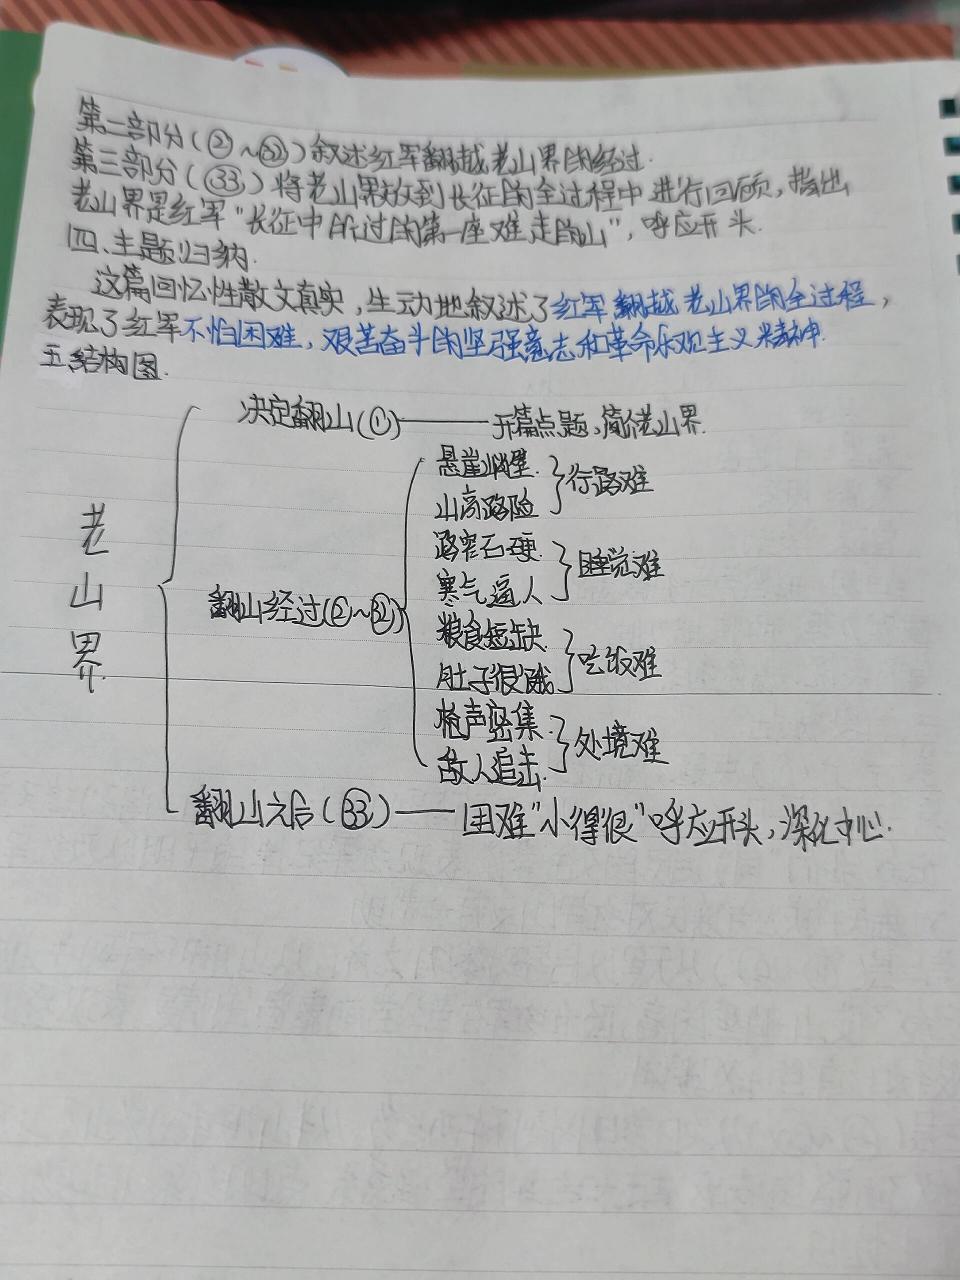 第二部分(②~㉜)叙述红军翻越老山界的经过.
第三部分(㉝)将老山界放到长征的全过程中进行回顾,指出
老山界是红军"长征中所过的第一座难走的山",呼应开头.
四、主题归纳.
这篇回忆性散文真实,生动地叙述了红军翻越老山界的全过程,
表现了红军不怕困难,艰苦奋斗的坚强意志和革命乐观主义精神.
五、结构图.
老山界.
决定翻山(①)——开篇点题,简介老山界.
翻山经过(②~㉜)
悬崖峭壁.
山高路险
行路难
路窄石硬.
寒气逼人
睡觉难
粮食短缺
肚子很饿
吃饭难
枪声密集.
敌人追击.
处境难
翻山之后(㉝)——困难"小得很"呼应开头,深化中心.